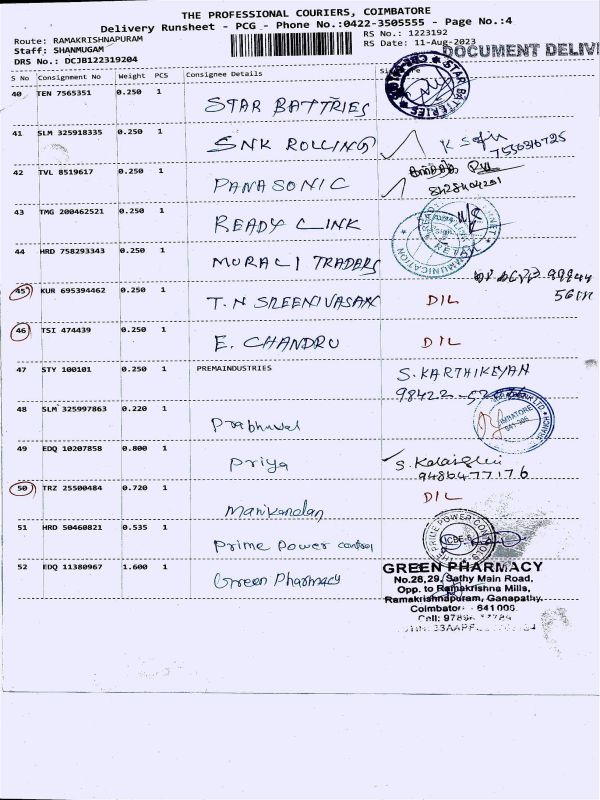 THE PROFESSIONAL COURIERS, COIMBATORE
Delivery Runsheet - PCG - Phone No.:0422-3505555 - Page No.:4
Route: RAMAKRISHNAPURAM
Staff: SHANMUGAM
DRS No.: DCJB122319204
RS No.: 1223192
RS Date: 11-Aug-2023
DOCUMENT DELIV
S No Consignment No Weight PCS Consignee Details
40 TEN 7565351 0.250 1 STAR BATTRIES
STAR BATTERIES
41 SLM 325918335 0.250 1 SNK ROLLING
7550316725
42 TVL 8519617 0.250 1 PANASONIC
43 TMG 200462521 0.250 1 READY LINK
44 HRD 758293343 0.250 1 MURALI TRADERS
COMMUNICATION
45 KUR 695394462 0.250 1 T.N SREENIVASAN DIL
46 TSI 474439 0.250 1 E. CHANDRU DIL
47 STY 100101 0.250 1 PREMAINDUSTRIES S. KARTHIKEYAN
48 SLM 325997863 0.220 1 Prabhaval
49 EDQ 10207858 0.800 1 Priya
9486477176
50 TRZ 25500484 0.720 1 Manikandan DIL
51 HRD 50460821 0.535 1 Prime Power control
THE PRIME POWER CONTROL
CBE-6
52 EDQ 11380967 1.600 1 Green Pharmacy
GREEN PHARMACY
No.28,29, Sathy Main Road,
Opp. to Ramakrishna Mills,
Ramakrishnapuram, Ganapathy,
Coimbatore - 641 006.